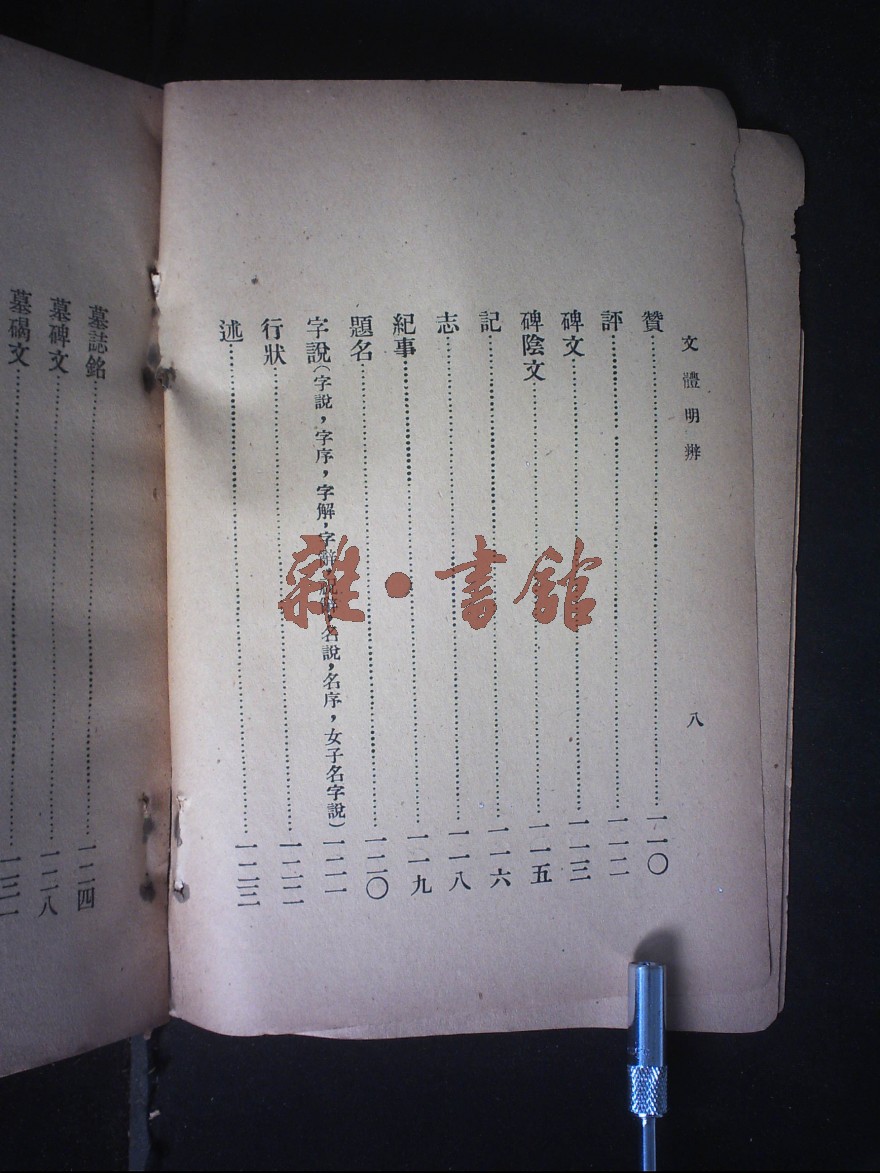 文體明辨 八
贊……一一〇
評……一一二
碑文……一一三
碑陰文……一一五
記……一一六
志……一一八
紀事……一一九
題名……一二〇
字說(字說，字序，字解，字辭，祝辭，名說，名序，女子名字說)一二一
行狀……一二二
述……一二三
墓誌銘……一二四
墓碑文……一二八
墓碣文……一三一
雜·書館